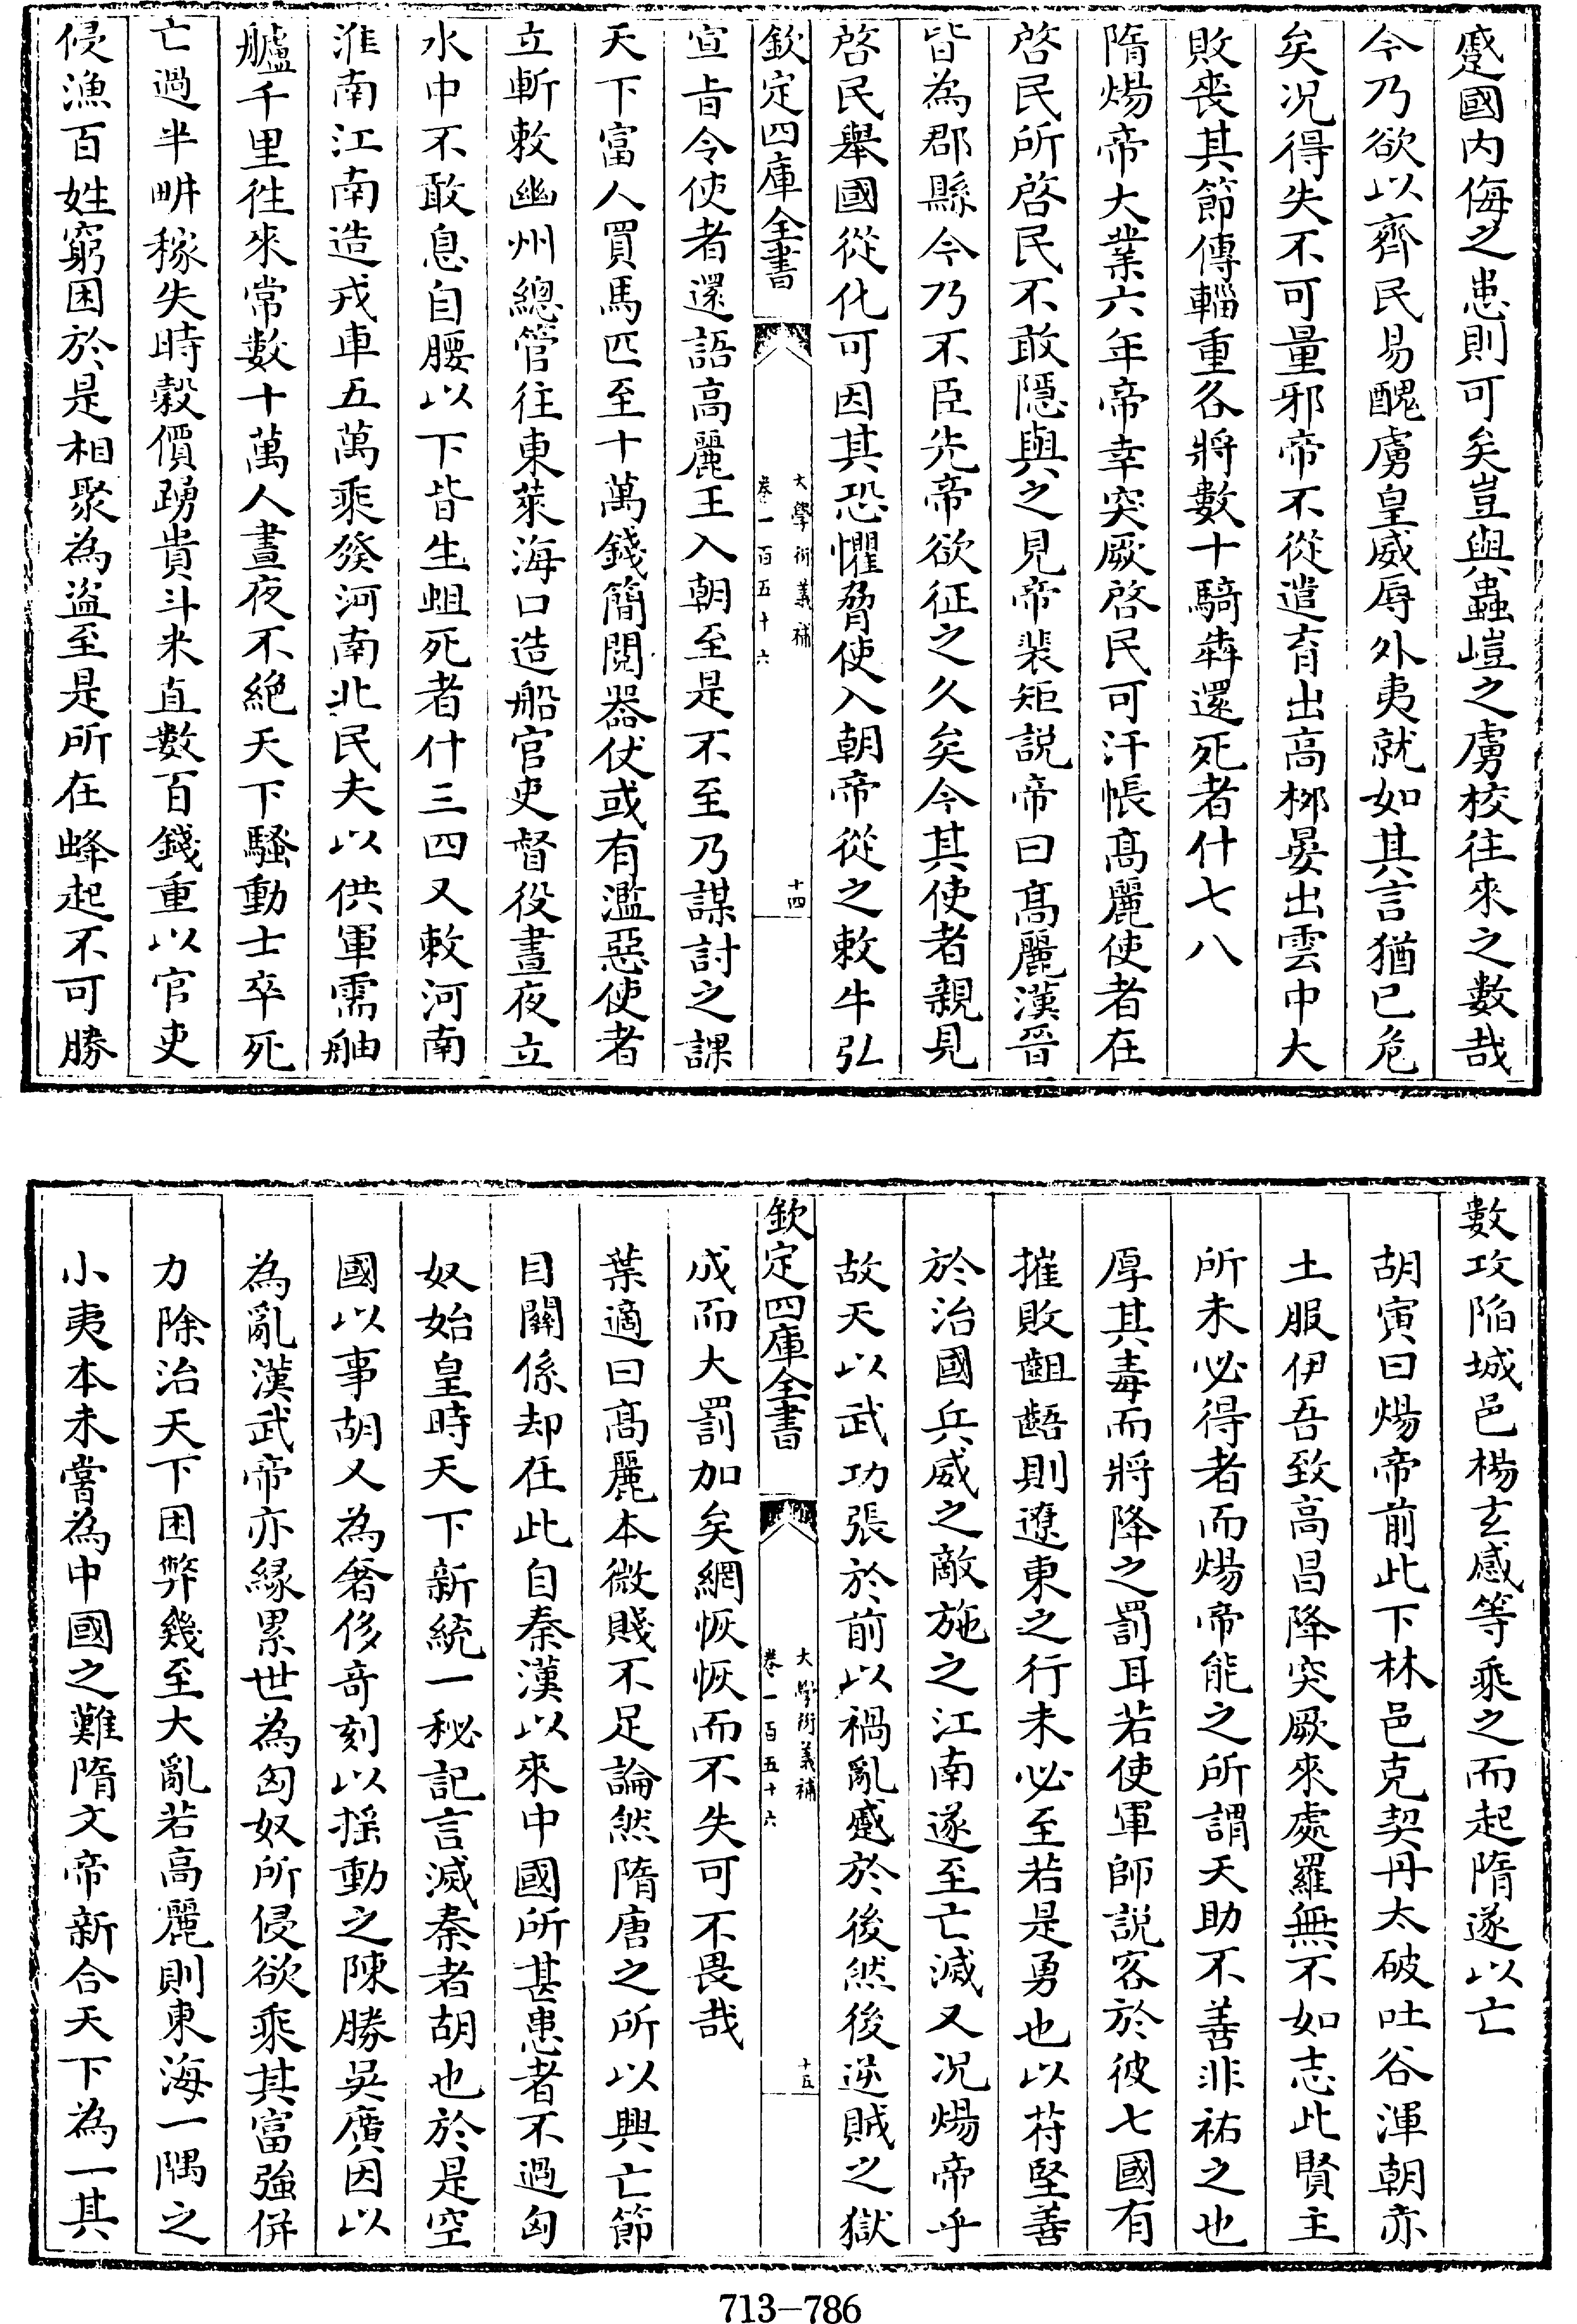 蹙國內侮之患則可矣豈與蟲螘之虜校往來之數哉
今乃欲以齊民易醜虜皇威辱外夷就如其言猶已危
矣况得失不可量邪帝不從遣育出高栁晏出雲中大
敗喪其節傳輜重各將數十騎犇還死者什七八
隋煬帝大業六年帝幸突厥啓民可汗帳髙麗使者在
啓民所啓民不敢隱與之見帝裴矩説帝曰髙麗漢晉
皆為郡縣今乃不臣先帝欲征之久矣今其使者親見
啓民舉國從化可因其恐懼脅使入朝帝從之敕牛弘
欽定四庫全書
大學衍義補
卷一百五十六
十四
宣旨令使者還語高麗王入朝至是不至乃謀討之課
天下富人買馬匹至十萬錢簡閱器仗或有濫惡使者
立斬敕幽州總管往東萊海口造船官吏督役晝夜立
水中不敢息自腰以下皆生蛆死者什三四又敕河南
淮南江南造戎車五萬乘發河南北民夫以供軍需舳
艫千里徃來常數十萬人晝夜不絶天下騷動士卒死
亡過半畊稼失時穀價踴貴斗米直數百錢重以官吏
侵漁百姓窮困於是相聚為盜至是所在蜂起不可勝
數攻陷城邑楊玄感等乘之而起隋遂以亡
胡寅曰煬帝前此下林邑克契丹太破吐谷渾朝亦
土服伊吾致高昌降突厥來處羅無不如志此賢主
所未必得者而煬帝能之所謂天助不善非祐之也
厚其毒而將降之罰耳若使軍師說客於彼七國有
摧敗齟齬則遼東之行未必至若是勇也以苻堅善
於治國兵威之敵施之江南遂至亡滅又况煬帝乎
故天以武功張於前以禍亂蹙於後然後逆賊之獄
欽定四庫全書
大學衍義補
卷一百五十六
十五
成而大罰加矣網恢恢而不失可不畏哉
葉適曰髙麗本微賤不足論然隋唐之所以興亡節
目關係却在此自秦漢以來中國所甚患者不過匈
奴始皇時天下新統一秘記言滅秦者胡也於是空
國以事胡又為奢侈竒刻以摇動之陳勝吳廣因以
為亂漢武帝亦緣累世為匈奴所侵欲乘其富強併
力除治天下困弊幾至大亂若高麗則東海一隅之
小夷本未嘗為中國之難隋文帝新合天下為一其
713-786